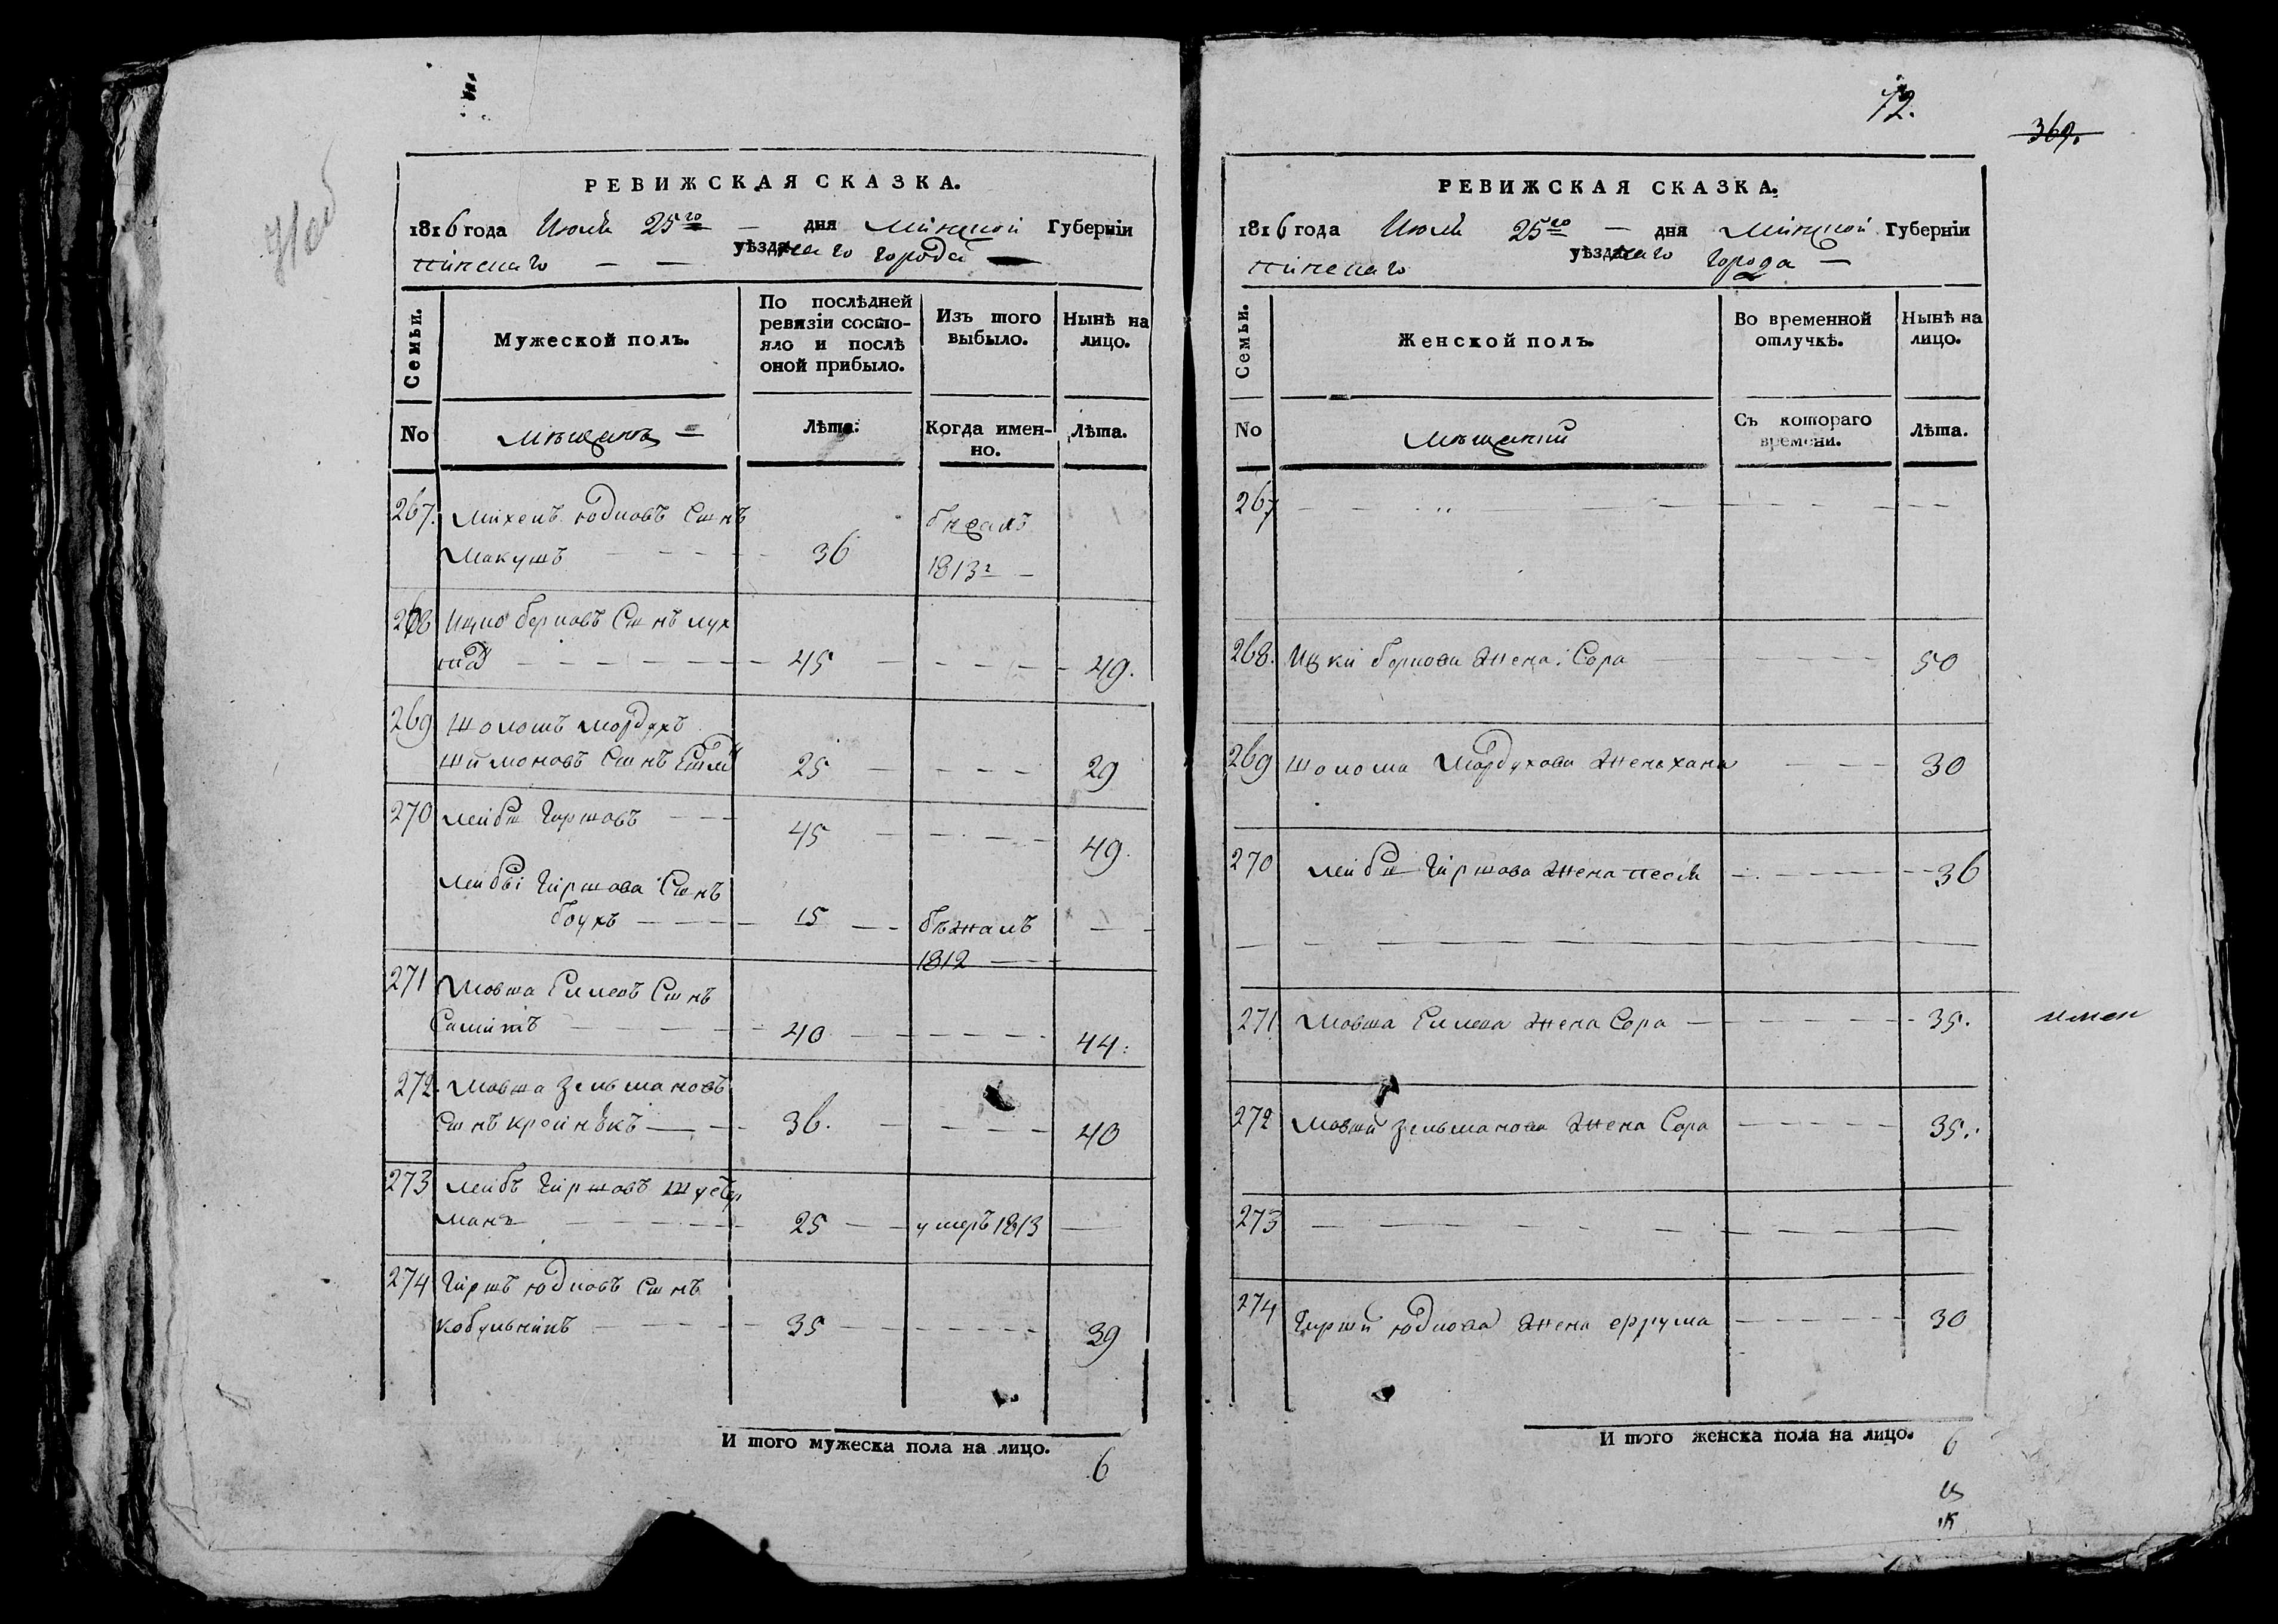 РЕВИЖСКАЯ СКАЗКА.
1816 года Июля 25го — дня Минской Губерніи
пинскаго — — уѣзднаго города —
Семьи.
Мужеской полъ.
По послѣдней ревизіи состояло и послѣ оной прибыло.
Изъ того выбыло.
Нынѣ на лицо.
No
мѣщанъ —
Лѣта.
Когда именно.
Лѣта.
267. Михель Юдковъ Сынъ бежалъ
Макушъ — — — — 36 1813г —
268 Ицко берковъ Сынъ
— — — — 45 — — — — 49.
269 Шоломъ Мордухъ
Шимоновъ Сынъ 25 — — — — 29
270 лейба Гиршовъ — — 45 — — — — 49.
лейбы Гиршова Сынъ
— — — 15 — — бѣжалъ — —
1812 — —
271 Мовша Сынъ
— — — — 40 — — — — 44.
272. Мовша Зельмановъ
Сынъ — — 36. — — — — 40
273 лейбъ Гиршовъ Шустер
манъ — — — — 25 — — умеръ 1813 —
274 Гиршъ Юдковъ Сынъ
Кобыльникъ — — — — 35 — — — — 39
И того мужеска пола на лицо.
6
72.
369.
РЕВИЖСКАЯ СКАЗКА.
1816 года Июля 25го — дня Минской Губерніи
пинскаго уѣзднаго Города —
Семьи.
Женской полъ.
Во временной отлучкѣ.
Нынѣ на лицо.
No
мѣщанки
Съ котораго времени.
Лѣта.
267 — — — — — — — —
268. Ицки беркова Жена Сора — — — — 50
269 Шолома Мордухова Жена хана — — — 30
270 лейбы Гиршова Жена песя — — — — 36
271 Мовша Жена Сора — — — — 35.
272 Мовши Зельманова Жена Сора — — — — 35.
273 — — — — — — — —
274 Гирши Юдкова Жена фрума — — — — 30
И того женска пола на лицо.
6